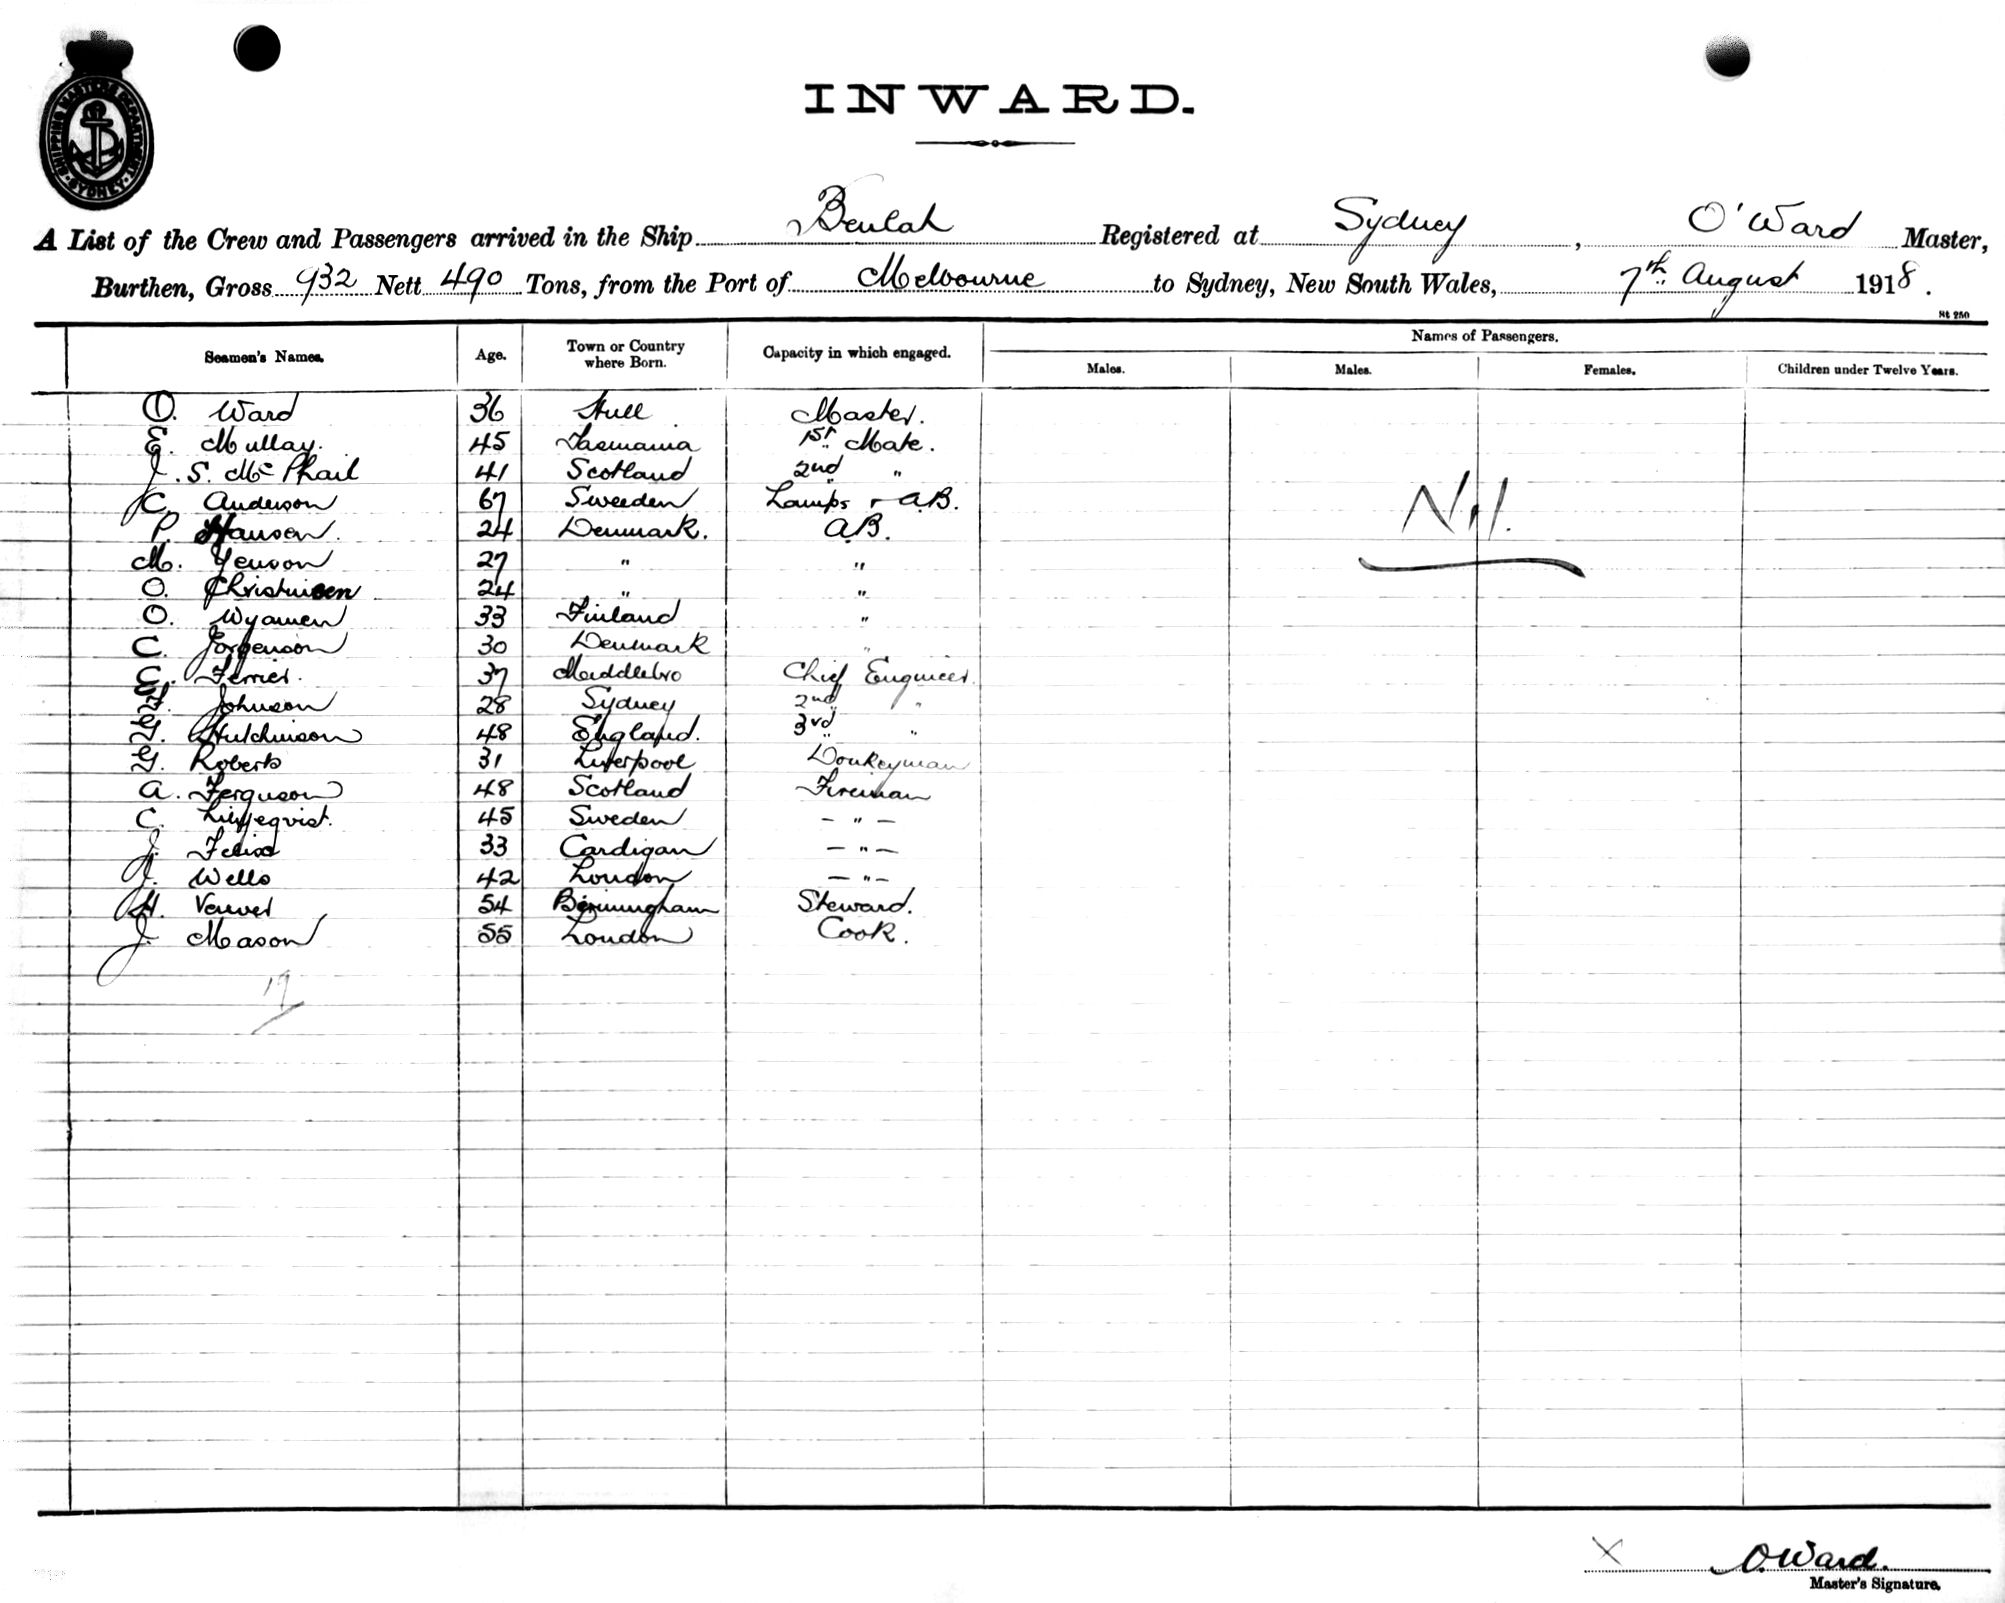 SHIPPING MASTER'S DEPARTMENT SYDNEY
INWARD.
A List of the Crew and Passengers arrived in the Ship Beulah Registered at Sydney, O'Ward Master,
Burthen, Gross 932 Nett 490 Tons, from the Port of Melbourne to Sydney, New South Wales, 7th August 1918.
St 250
Seamen's Names. Age. Town or Country where Born. Capacity in which engaged. Names of Passengers.
Males. Males. Females. Children under Twelve Years.
O. Ward 36 Hull Master.
E. Mullay. 45 Tasmania 1st Mate.
J. S. McPhail 41 Scotland 2nd "
C. Anderson 67 Sweeden Lamps & A.B.
P. Hansen. 24 Denmark. A.B.
M. Yenson 27 " "
O. Christinsen 24 " "
O. Wyamen 33 Finland "
C. Jorgenson 30 Denmark "
E. Ferrier. 37 Middlebro Chief Engineer.
F. Johnson 28 Sydney 2nd "
G. Hutchinson 48 England. 3rd "
G. Roberts 31 Liverpool Donkeyman
A. Ferguson 48 Scotland Fireman
C. Liljeqvist. 45 Sweden - " -
J. Felix 33 Cardigan - " -
J. Wells 42 London - " -
H. 54 Birmingham Steward.
J. Mason 55 London Cook.
Nil.
19
X O. Ward.
Master's Signature.